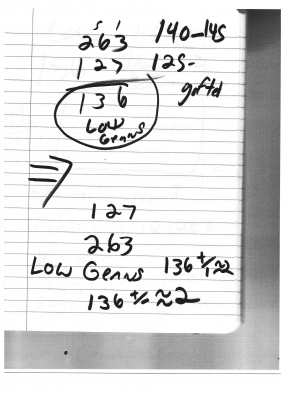 5 1
263 140-145
127 125-
136 gifted
Low
Genns
127
263
Low Genns 136 +/- ≈2
136 +/- ≈2